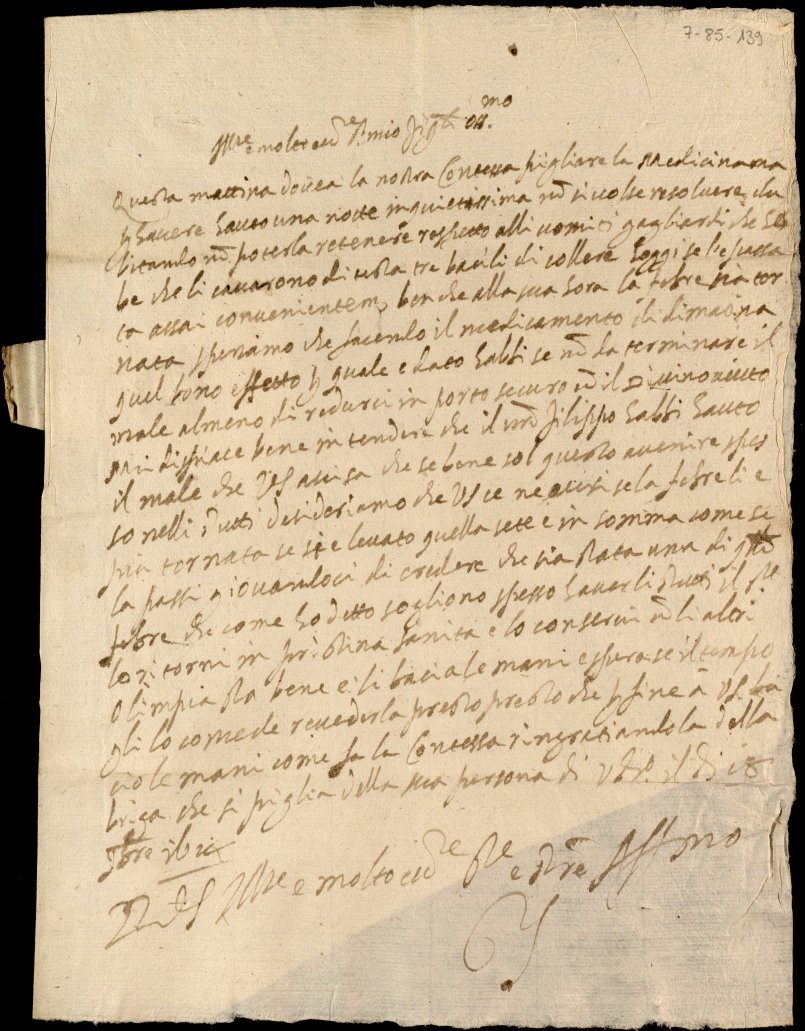 7-85-139
Ill.re e molto ecc.te S.r mio fig.li oss.mo
Questa mattina dovea la nostra Contessa pigliare la Medicina ma
p havere hauto una notte inquietissima nō si volse resolvere du
bitando nō poterla retenere respetto alli vomiti gagliardi che heb
be che li cavarono di testa tre bacili di collere hoggi se l'e passa
ta assai convenientem, benche alla sua hora la febre sia tor
nata speriamo che facendo il medicamento di dimatina
quel bono effetto p quale e dato habbi se nō da terminare il
male almeno di redurci in porto securo cō il Divino aiuto
Mi dispiace bene intendere che il Filippo habbi hauto
il male che VS avisa che se bene sol questo avenire spes
so nelli putti desideriamo che VS ce ne avisi se la febre li e
piu tornata se si e levato quella sete e in somma come se
la passi giovandoci di credere che sia stata una di q.lle
febre che come ho detto sogliono spesso haver li putti il S.re
lo ritorni in pristina sanita e lo conservi cō li altri
Olimpia sta bene e li bacia le mani e spera se il tempo
gli lo comede revederla presto presto che p fine à VS ba
cio le mani come fa la Contessa ringratiandola della
briga che si piglia della sua persona di il di 18
9bre
Di VS Ill.re e molto ecc.te